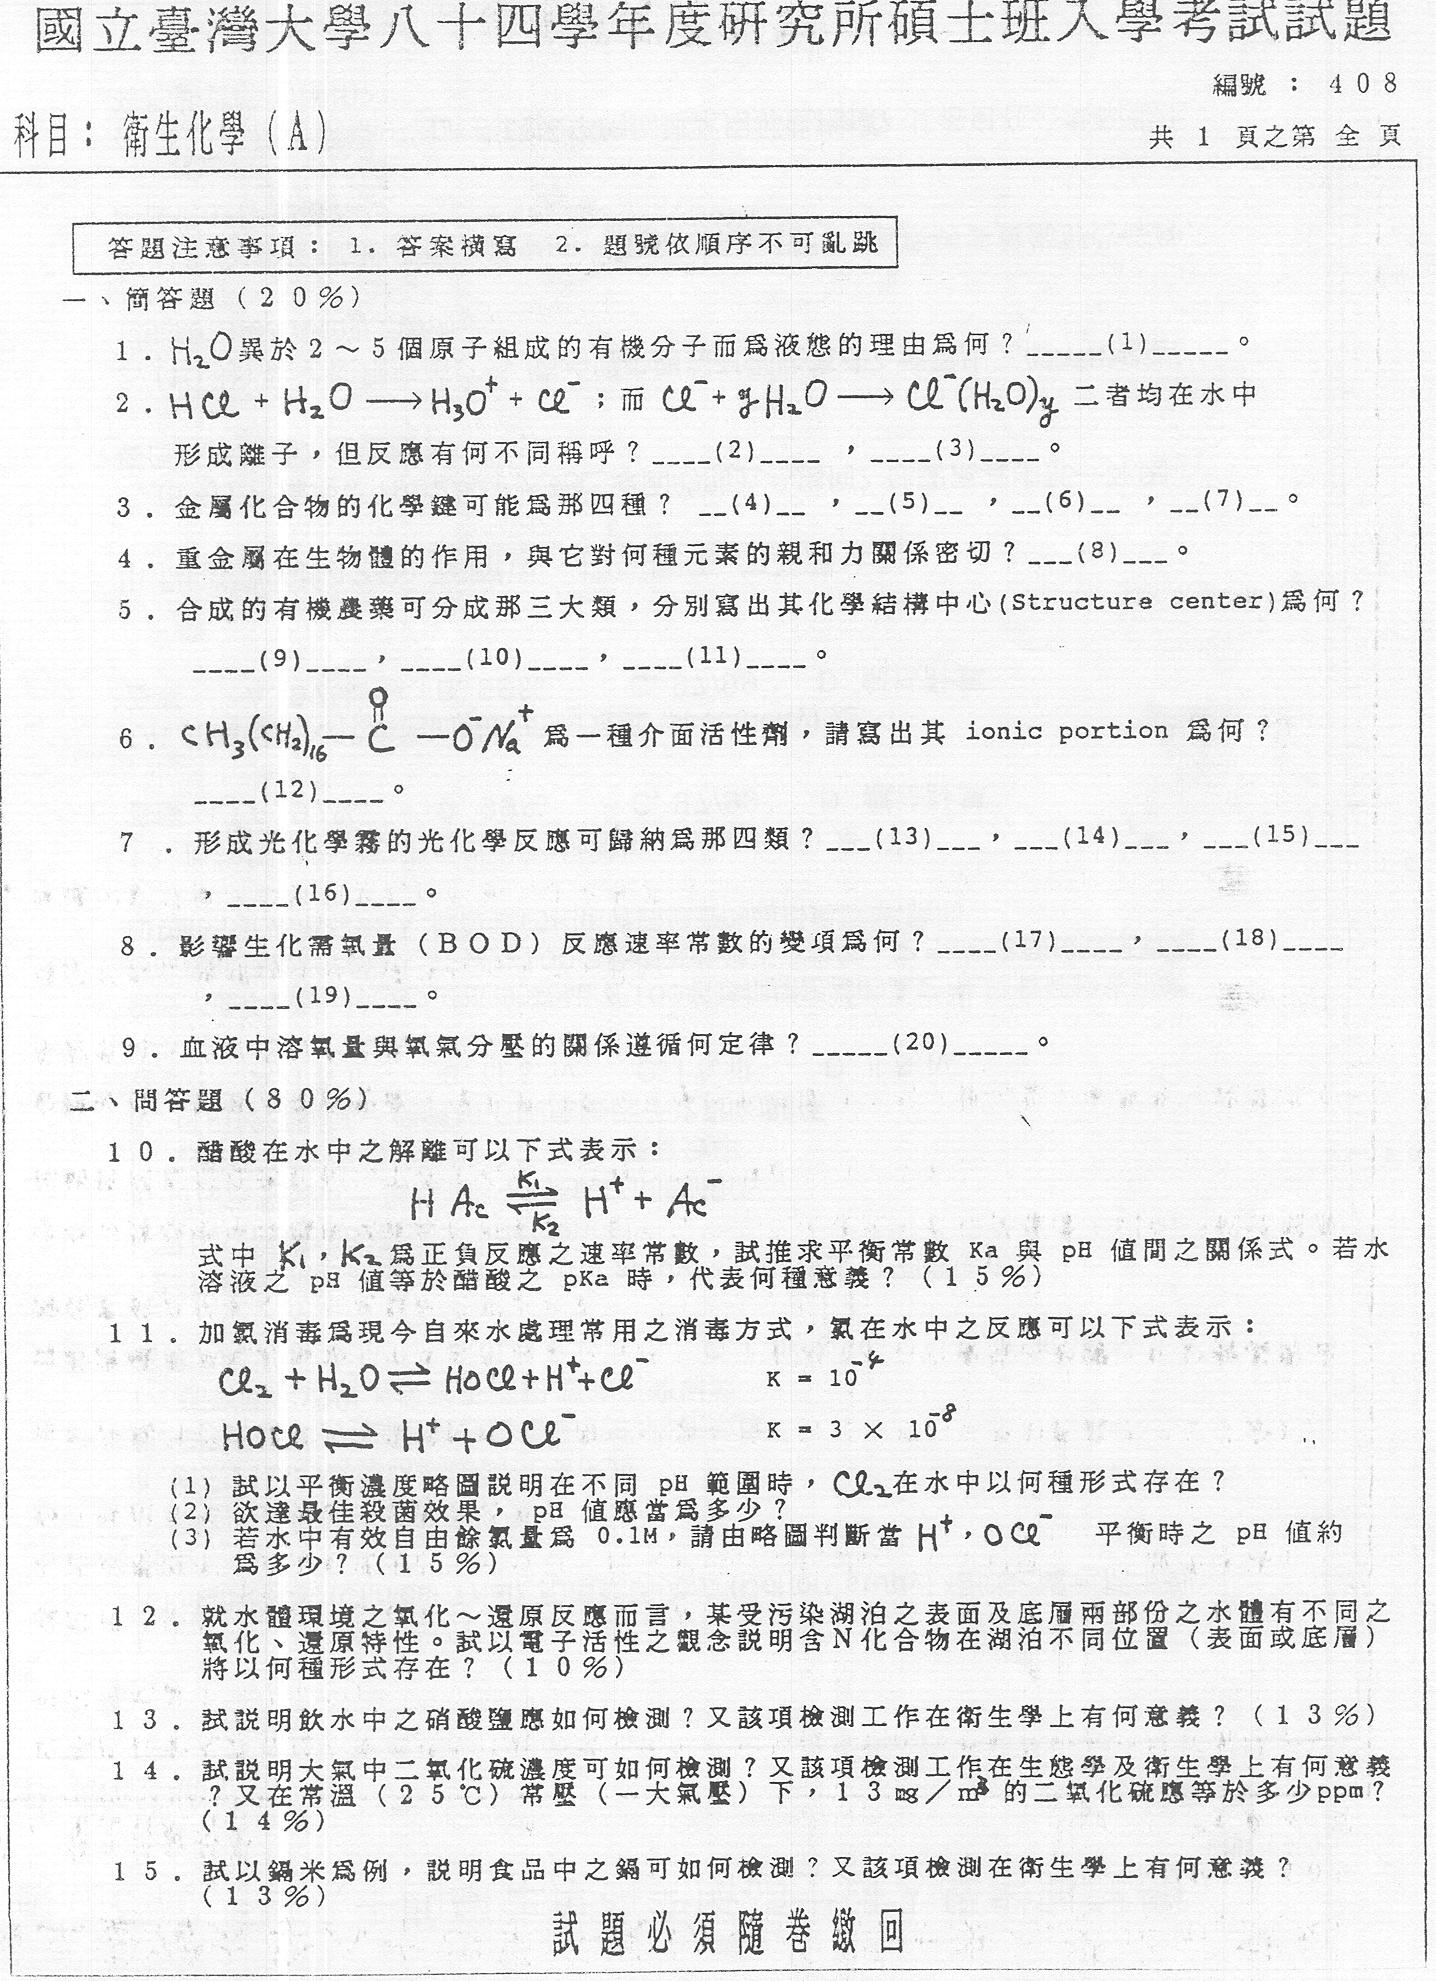 國立臺灣大學八十四學年度研究所碩士班入學考試試題
編號 : 408
科目：衛生化學(A)
共 1 頁之第 全 頁
答題注意事項： 1. 答案橫寫 2. 題號依順序不可亂跳
一、簡答題(20%)
1. H₂O異於2～5個原子組成的有機分子而為液態的理由為何？_____(1)_____。
2. HCl + H₂O ⟶ H₃O⁺ + Cl⁻；而 Cl⁻ + yH₂O ⟶ Cl⁻(H₂O)y 二者均在水中
形成離子，但反應有何不同稱呼？____(2)____ ，____(3)____。
3. 金屬化合物的化學鍵可能為那四種？ __(4)__ ，__(5)__ ，__(6)__ ，__(7)__。
4. 重金屬在生物體的作用，與它對何種元素的親和力關係密切？___(8)___。
5. 合成的有機農藥可分成那三大類，分別寫出其化學結構中心(Structure center)為何？
____(9)____，____(10)____，____(11)____。
O
6. CH₃(CH₂)₁₆— C —O⁻Na⁺ 為一種介面活性劑，請寫出其 ionic portion 為何？
____(12)____。
7 . 形成光化學霧的光化學反應可歸納為那四類？___(13)___，___(14)___，___(15)___
，____(16)____。
8. 影響生化需氧量(BOD)反應速率常數的變項為何？____(17)____，____(18)____
，____(19)____。
9. 血液中溶氧量與氧氣分壓的關係遵循何定律？_____(20)_____。
二、問答題(80%)
10. 醋酸在水中之解離可以下式表示：
K₁
HAc ⇌ H⁺ + Ac⁻
K₂
式中 K₁，K₂ 為正負反應之速率常數，試推求平衡常數 Ka 與 pH 值間之關係式。若水
溶液之 pH 值等於醋酸之 pKa 時，代表何種意義？(15%)
11. 加氯消毒為現今自來水處理常用之消毒方式，氯在水中之反應可以下式表示：
Cl₂ + H₂O ⇌ HOCl + H⁺ + Cl⁻ K = 10⁻⁴
HOCl ⇌ H⁺ + OCl⁻ K = 3 × 10⁻⁸
(1) 試以平衡濃度略圖說明在不同 pH 範圍時，Cl₂在水中以何種形式存在？
(2) 欲達最佳殺菌效果， pH 值應當為多少？
(3) 若水中有效自由餘氯量為 0.1M，請由略圖判斷當 H⁺，OCl⁻ 平衡時之 pH 值約
為多少？(15%)
12. 就水體環境之氧化～還原反應而言，某受污染湖泊之表面及底層兩部份之水體有不同之
氧化、還原特性。試以電子活性之觀念說明含N化合物在湖泊不同位置（表面或底層）
將以何種形式存在？(10%)
13. 試說明飲水中之硝酸鹽應如何檢測？又該項檢測工作在衛生學上有何意義？(13%)
14. 試說明大氣中二氧化硫濃度可如何檢測？又該項檢測工作在生態學及衛生學上有何意義
？又在常溫（25℃）常壓（一大氣壓）下，13 mg／m³ 的二氧化硫應等於多少ppm？
(14%)
15. 試以鎘米為例，說明食品中之鎘可如何檢測？又該項檢測在衛生學上有何意義？
(13%)
試題必須隨卷繳回